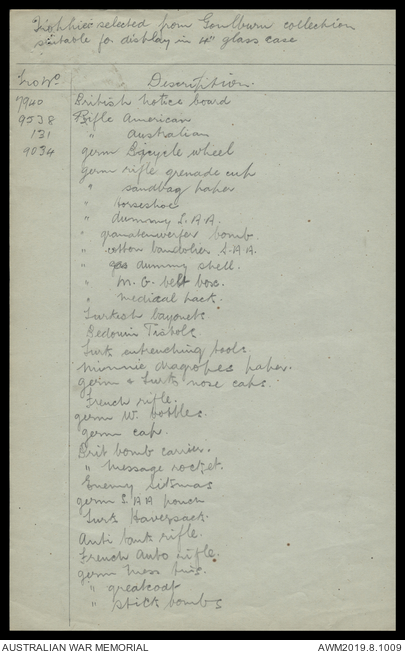 Trophies selected from Goulburn collection
suitable for display in 4" glass case
Description
7940 British notice board
9538 Rifle American
131 " Australian
9034 Germ Bicycle wheel
Germ rifle grenade cup
" sandbag paper
" horseshoe
" dummy S.A.A.
" granatenwerfer bomb
" cotton bandolier S.A.A.
" gas dummy shell.
" M.G. belt box.
" medical pack.
Turkish bayonets
Bedouin Pistols
Turk entrenching tools.
Minnie dragropes paper.
Germ & Turk nose caps.
French rifle.
Germ W. bottles.
Germ cap.
Brit bomb carrier.
" message rocket.
Enemy
Germ S.A.A pouch
Turk Haversack.
Anti tank rifle.
French Auto rifle.
Germ Mess tins.
" greatcoat
" stick bombs
AUSTRALIAN WAR MEMORIAL
AWM2019.8.1009